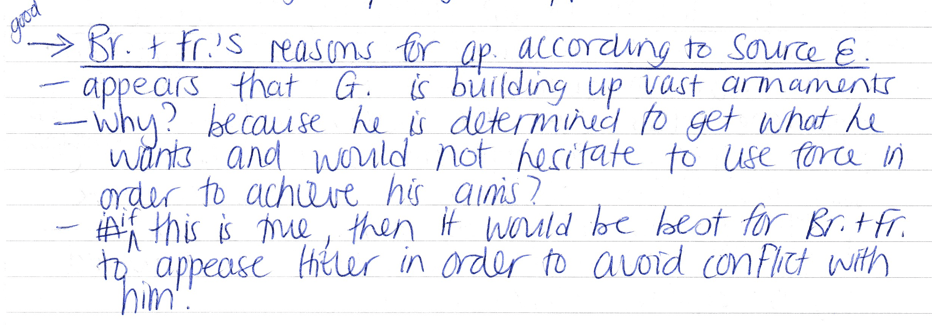 good
→ Br. + Fr.'s reasons for ap. according to Source E.
- appears that G. is building up vast armaments
- Why? because he is determined to get what he
wants and would not hesitate to use force in
order to achieve his aims?
- if this is true, then it would be best for Br. + Fr.
to appease Hitler in order to avoid conflict with
him.